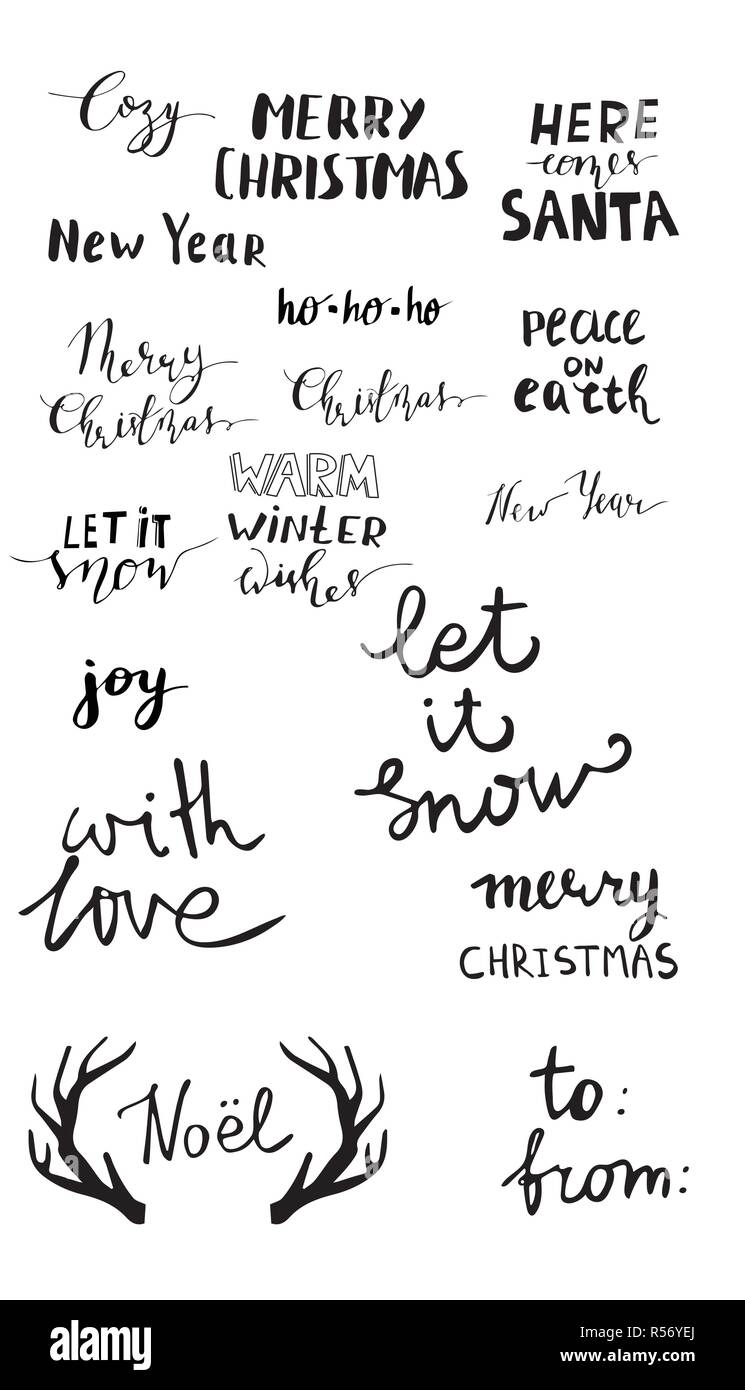 Cozy
MERRY
CHRISTMAS
HERE
comes
SANTA
New Year
ho·ho·ho
Merry
Christmas
Christmas
peace
ON
earth
WARM
WiNtER
wishes
New Year
LET iT
snow
let
it
snow
joy
with
love
merry
CHRISTMAS
Noël
to:
from:
alamy
Image ID: R56YEJ
www.alamy.com